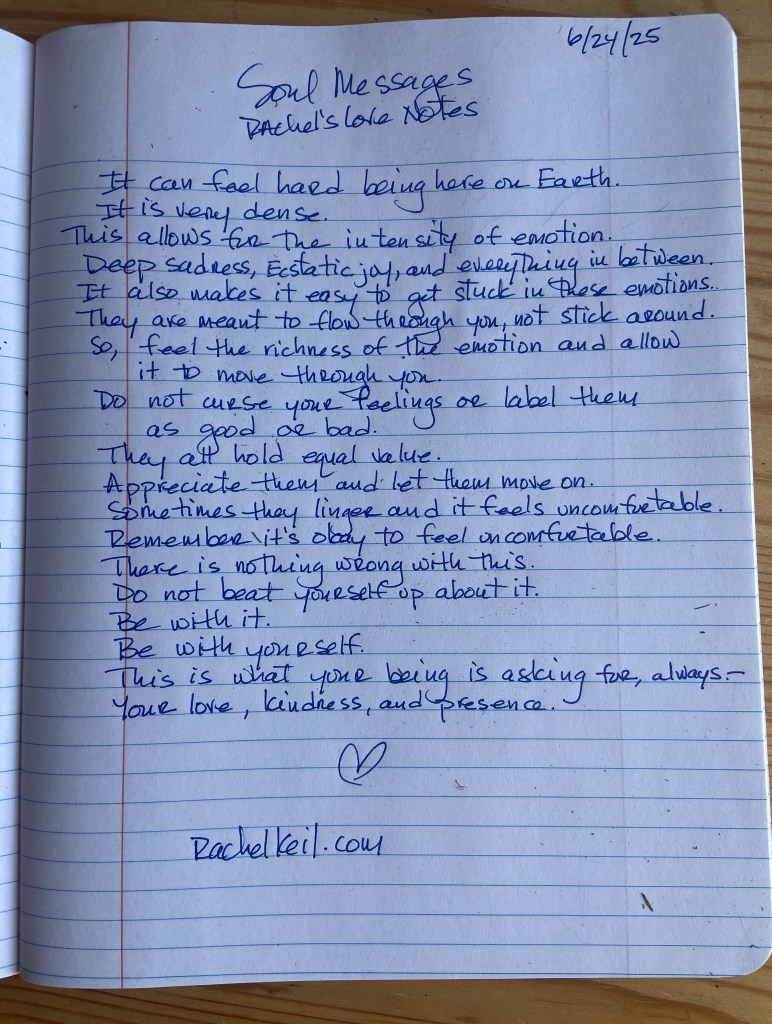 6/24/25
Soul Messages
Rachel's Love Notes
It can feel hard being here on Earth.
It is very dense.
This allows for the intensity of emotion.
Deep sadness, Ecstatic joy, and everything in between.
It also makes it easy to get stuck in these emotions.
They are meant to flow through you, not stick around.
So, feel the richness of the emotion and allow
it to move through you.
Do not curse your feelings or label them
as good or bad.
They all hold equal value.
Appreciate them and let them move on.
Sometimes they linger and it feels uncomfortable.
Remember it's okay to feel uncomfortable.
There is nothing wrong with this.
Do not beat yourself up about it.
Be with it.
Be with yourself.
This is what your being is asking for, always -
Your love, kindness, and presence.
RachelKeil.com